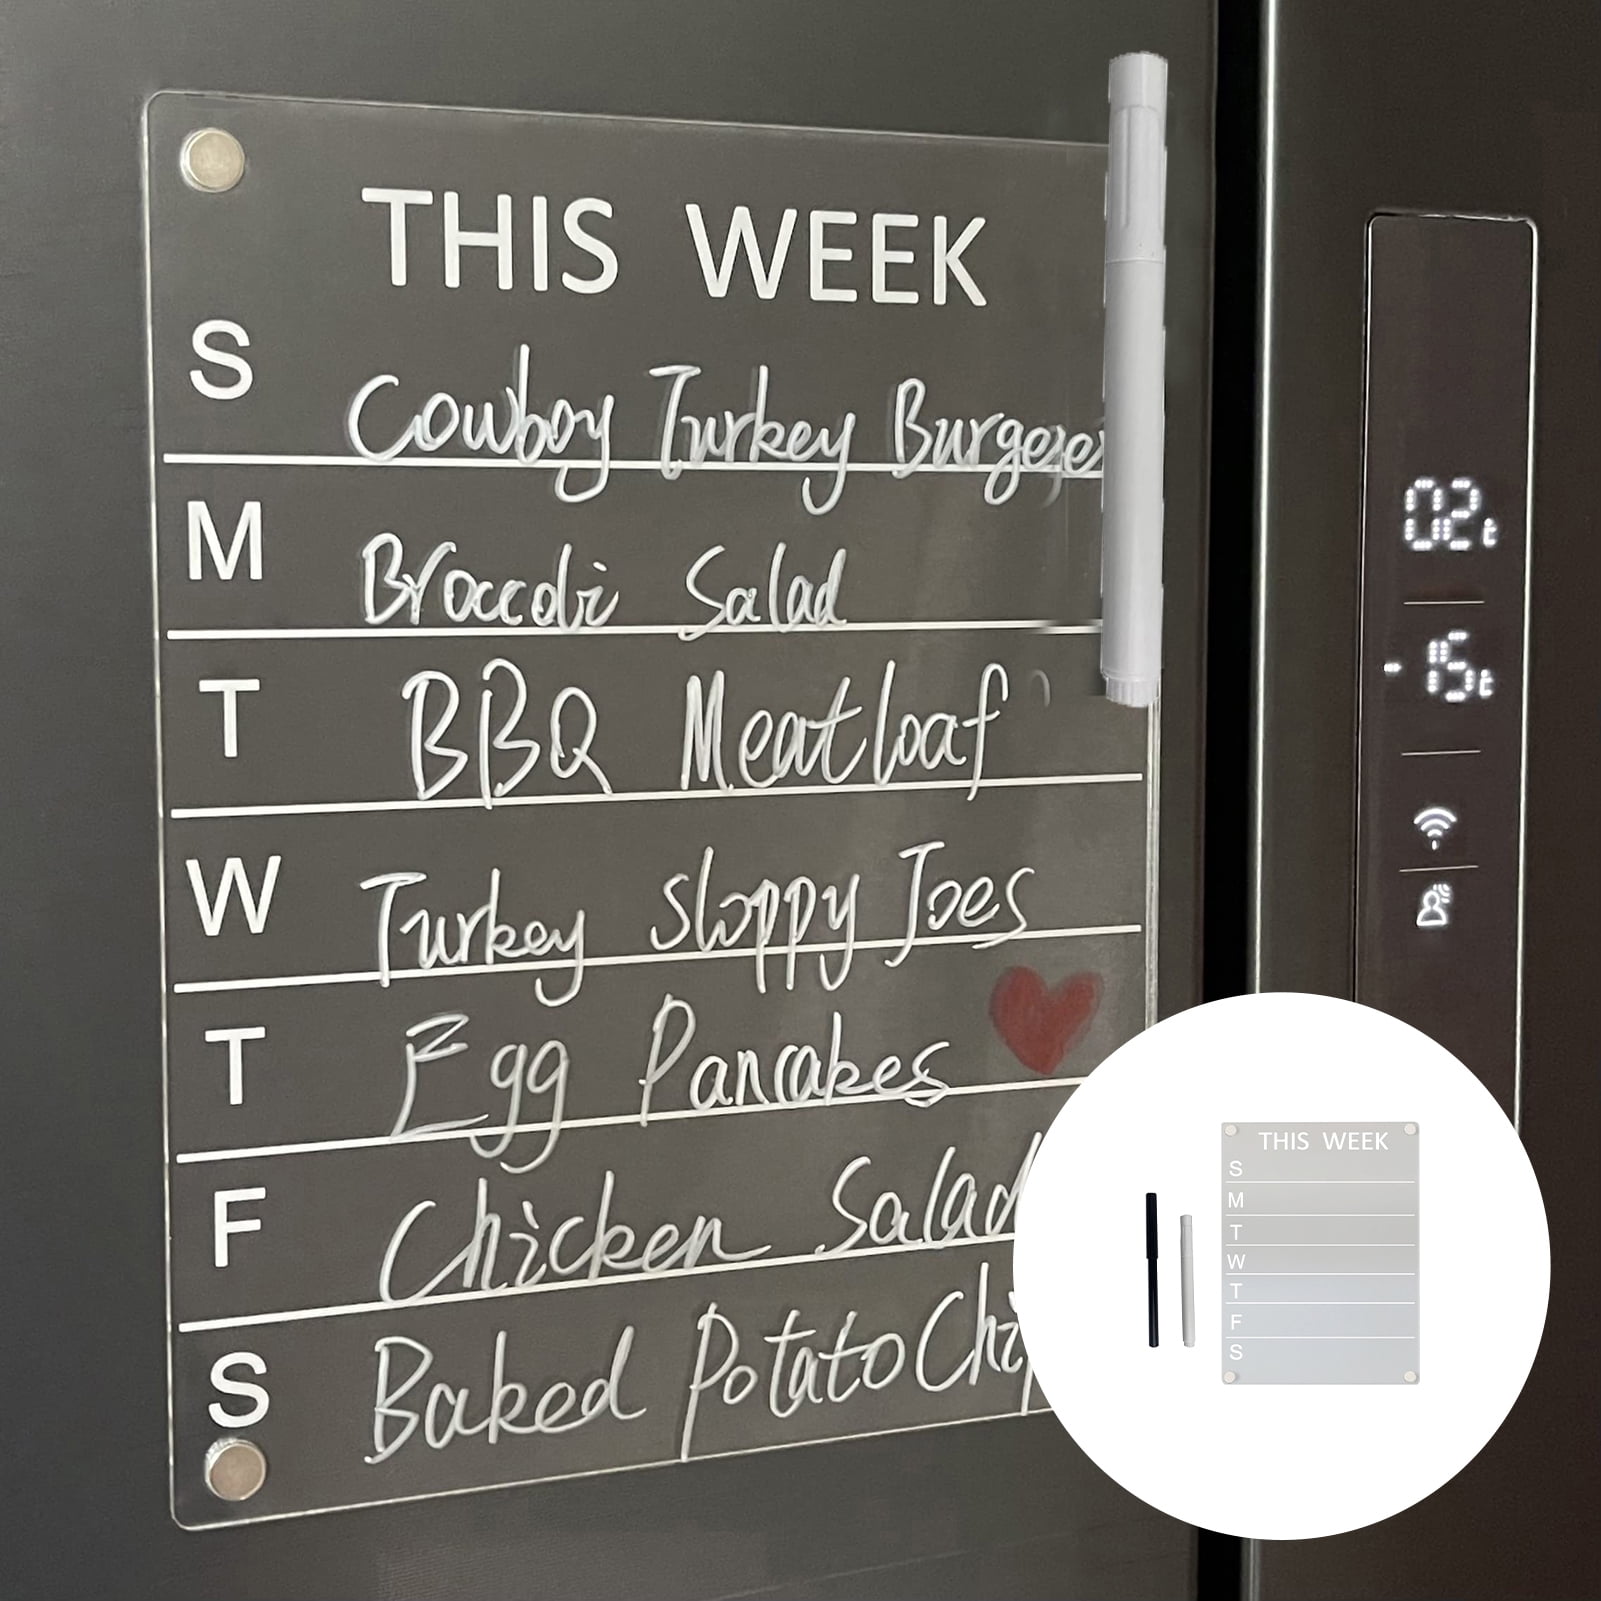 THIS WEEK
S
Cowboy Turkey Burgeze
M
Broccoli Salad
T
BBQ Meatloaf
W
Turkey Sloppy Joes
T
Egg Pancakes
F
Chicken Salad
S
Baked Potato Chip
02
-15
THIS WEEK
S
M
T
W
T
F
S